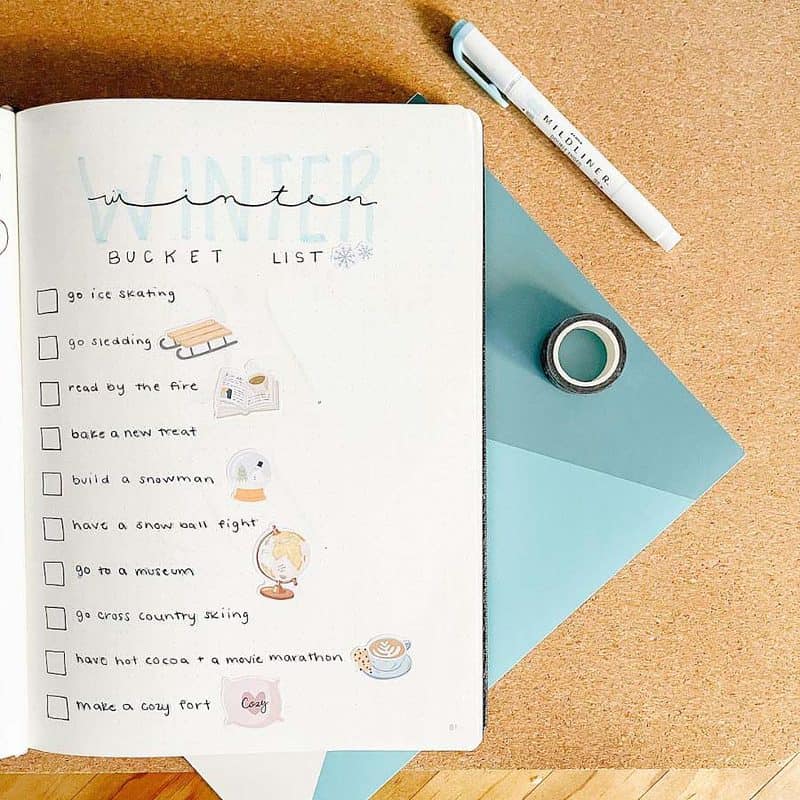 WINTER
winter
BUCKET LIST
go ice skating
go sledding
read by the fire
bake a new treat
build a snowman
have a snow ball fight
go to a museum
go cross country skiing
have hot cocoa + a movie marathon
make a cozy fort
Cozy
ZEBRA
MILDLINER